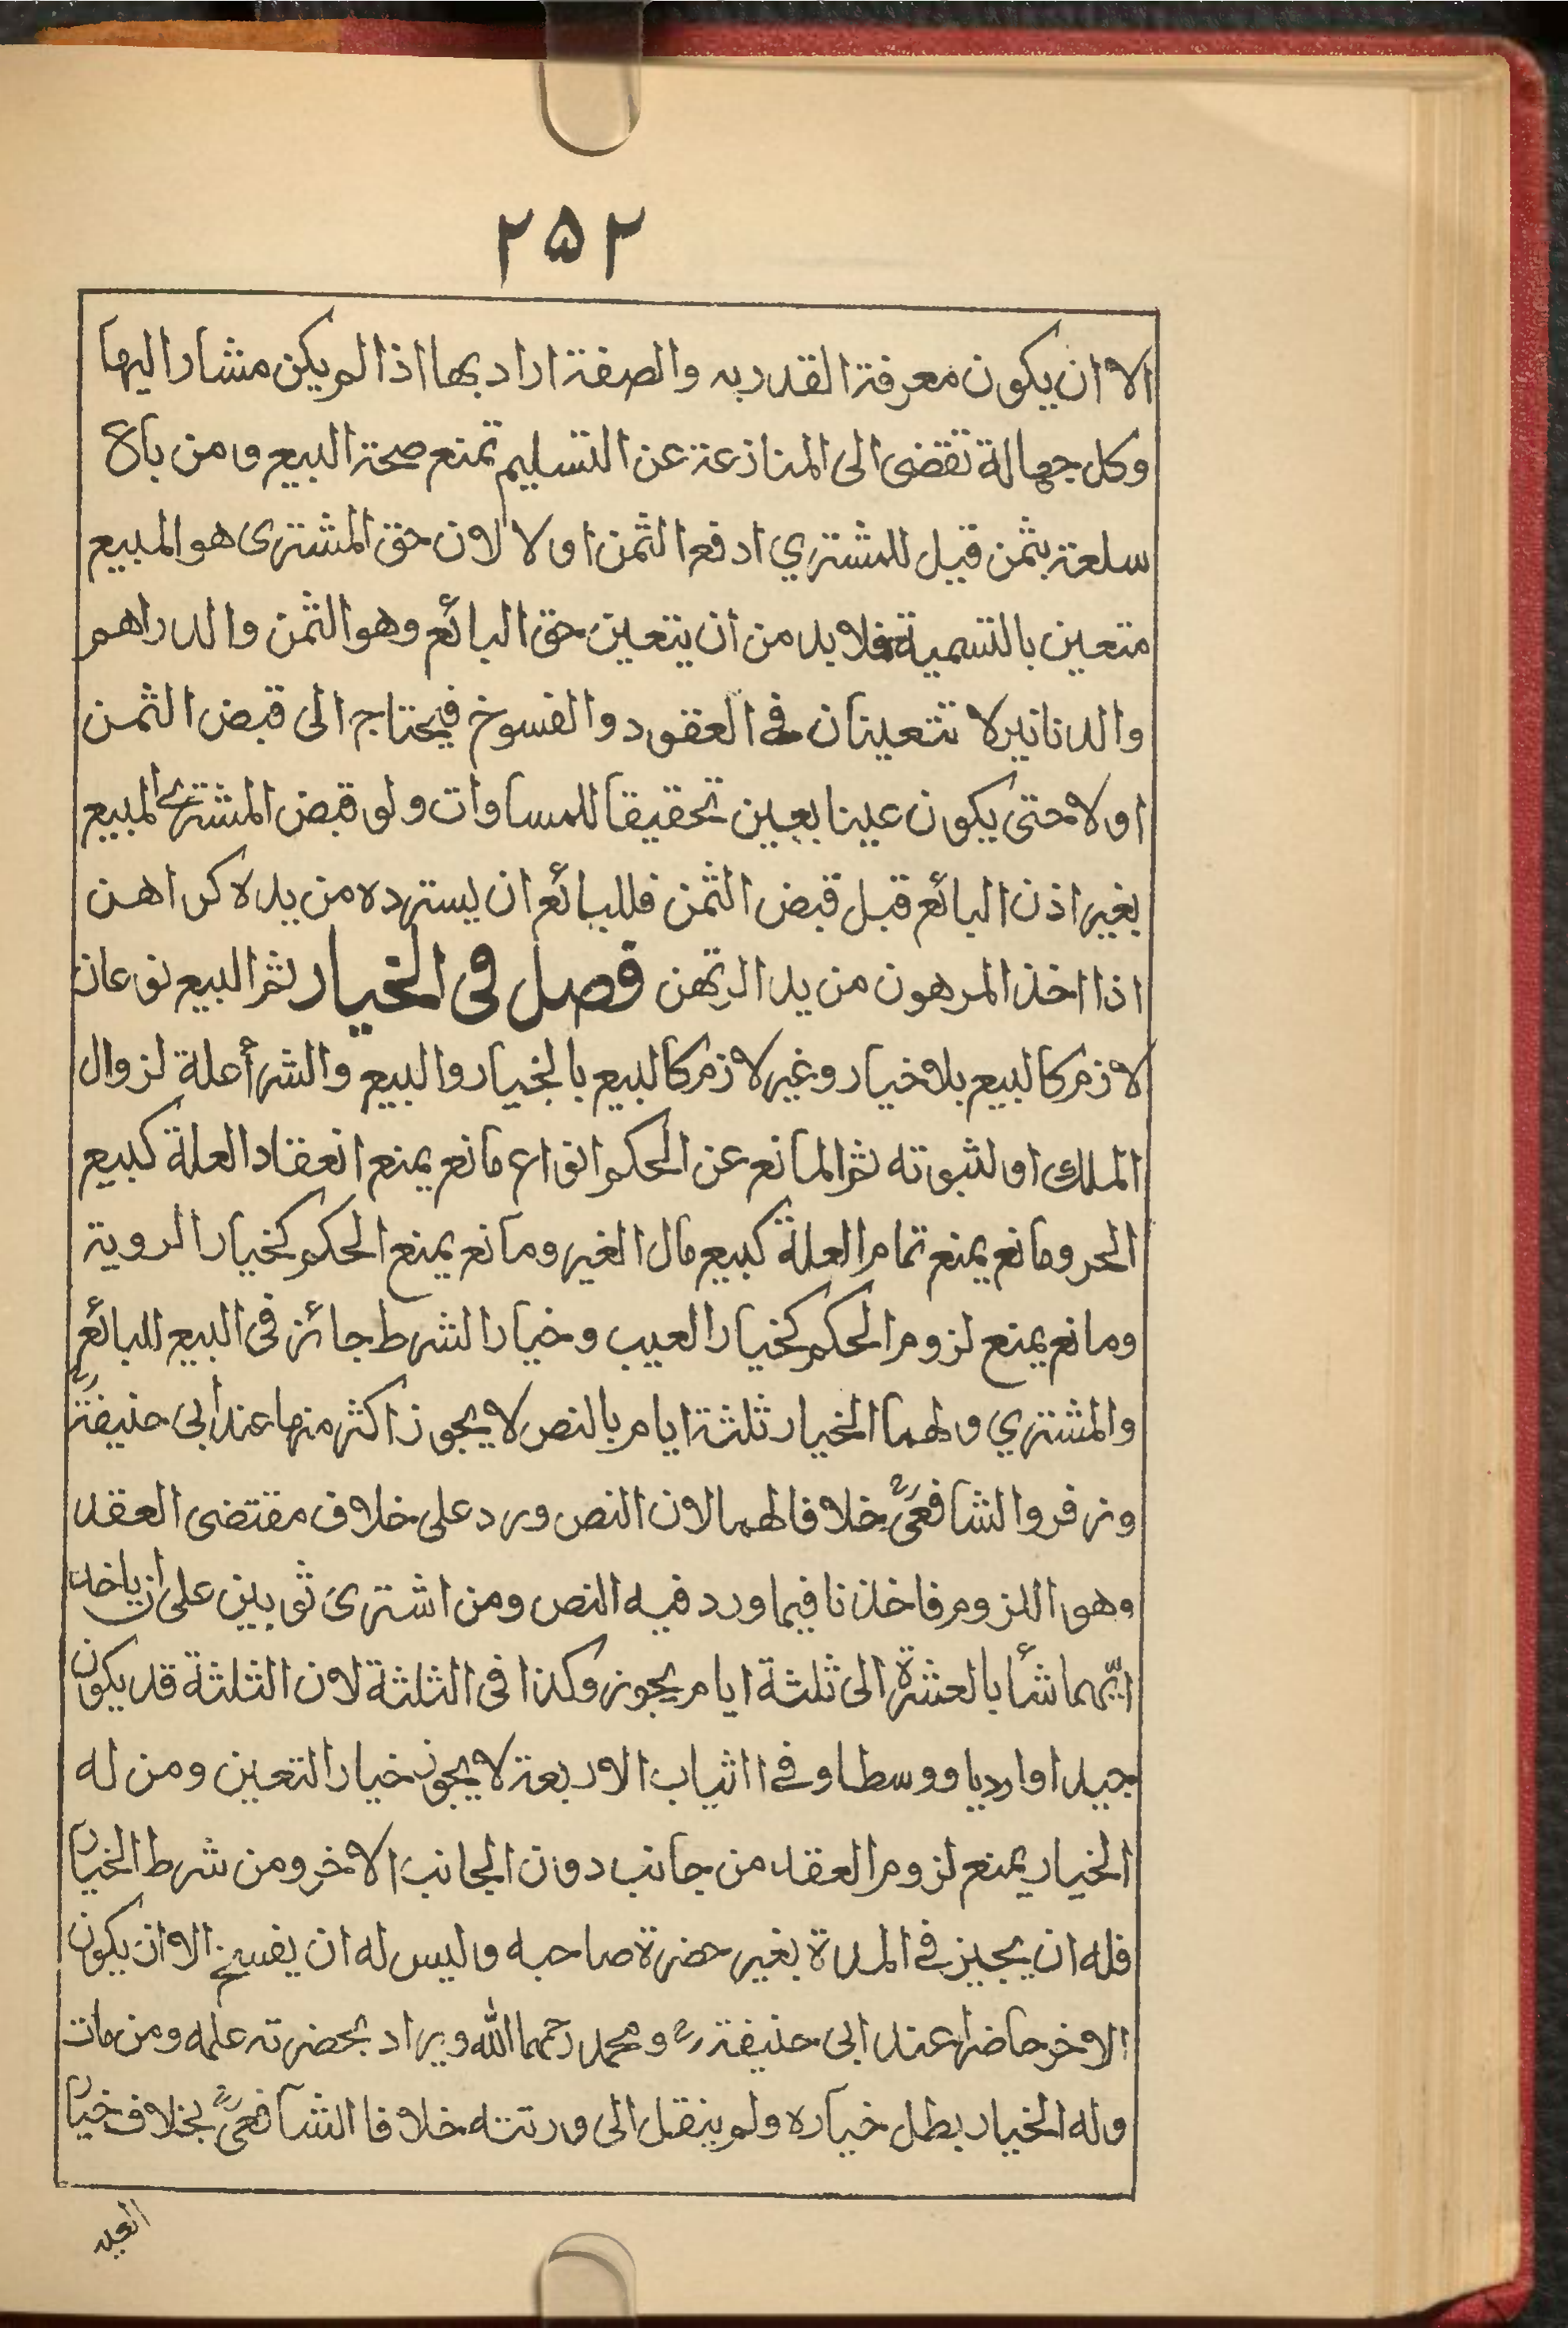 ۲۵۲
الا ان يكون معرفة القدر به والصفة اراد بها اذا لم يكن مشارا اليها
وكل جهالة تقضى الى المنازعة عن التسليم تمنع صحة البيع ومن باع
سلعة بثمن قيل للمشتري ادفع الثمن اولا لان حق المشترى هو المبيع
متعين بالتسمية فلا بد من أن يتعين حق البائع وهو الثمن والدراهم
والدنانير لا تتعينان فى العقود والفسوخ فيحتاج الى قبض الثمن
اولا حتى يكون عينا بعين تحقيقا للمساوات ولو قبض المشترى المبيع
بغير اذن البائع قبل قبض الثمن فللبائع ان يسترده من يده كراهن
اذا اخذ المرهون من يد المرتهن فصل فى الخيار ثم البيع نوعان
لازم كالبيع بلا خيار وغير لازم كالبيع بالخيار والبيع والشرأ علة لزوال
الملك او لثبوته ثم المانع عن الحكم انواع مانع يمنع انعقاد العلة كبيع
الحر ومانع يمنع تمام العلة كبيع مال الغير ومانع يمنع الحكم كخيار الروية
ومانع يمنع لزوم الحكم كخيار العيب وخيار الشرط جائز فى البيع للبائع
والمشتري ولهما الخيار ثلثة ايام بالنص لا يجوز اكثر منها عند أبى حنيفة رح
وزفر والشافعى رح خلافا لهما لان النص ورد على خلاف مقتضى العقد
وهو اللزوم فاخذنا فيما ورد فيه النص ومن اشترى ثوبين على أن ياخذ
ايّهما شأ بالعشرة الى ثلثة ايام يجوز وكذا فى الثلثة لان الثلثة قد يكون
جيدا او ارديا ووسطا وفى ااثياب الاربعة لا يجوز خيار التعين ومن له
الخيار يمنع لزوم العقد من جانب دون الجانب الاخر ومن شرط الخيار
فله ان يجيز فى المدة بغير حضرة صاحبه وليس له ان يفسخ الا ان يكون
الاخر حاضرا عند ابى حنيفة رح ومحمد رحمهما الله ويراد بحضرته علمه ومن مات
وله الخيار بطل خياره ولم ينقل الى ورثته خلافا الشافعى رح بخلاف خيار
العيب